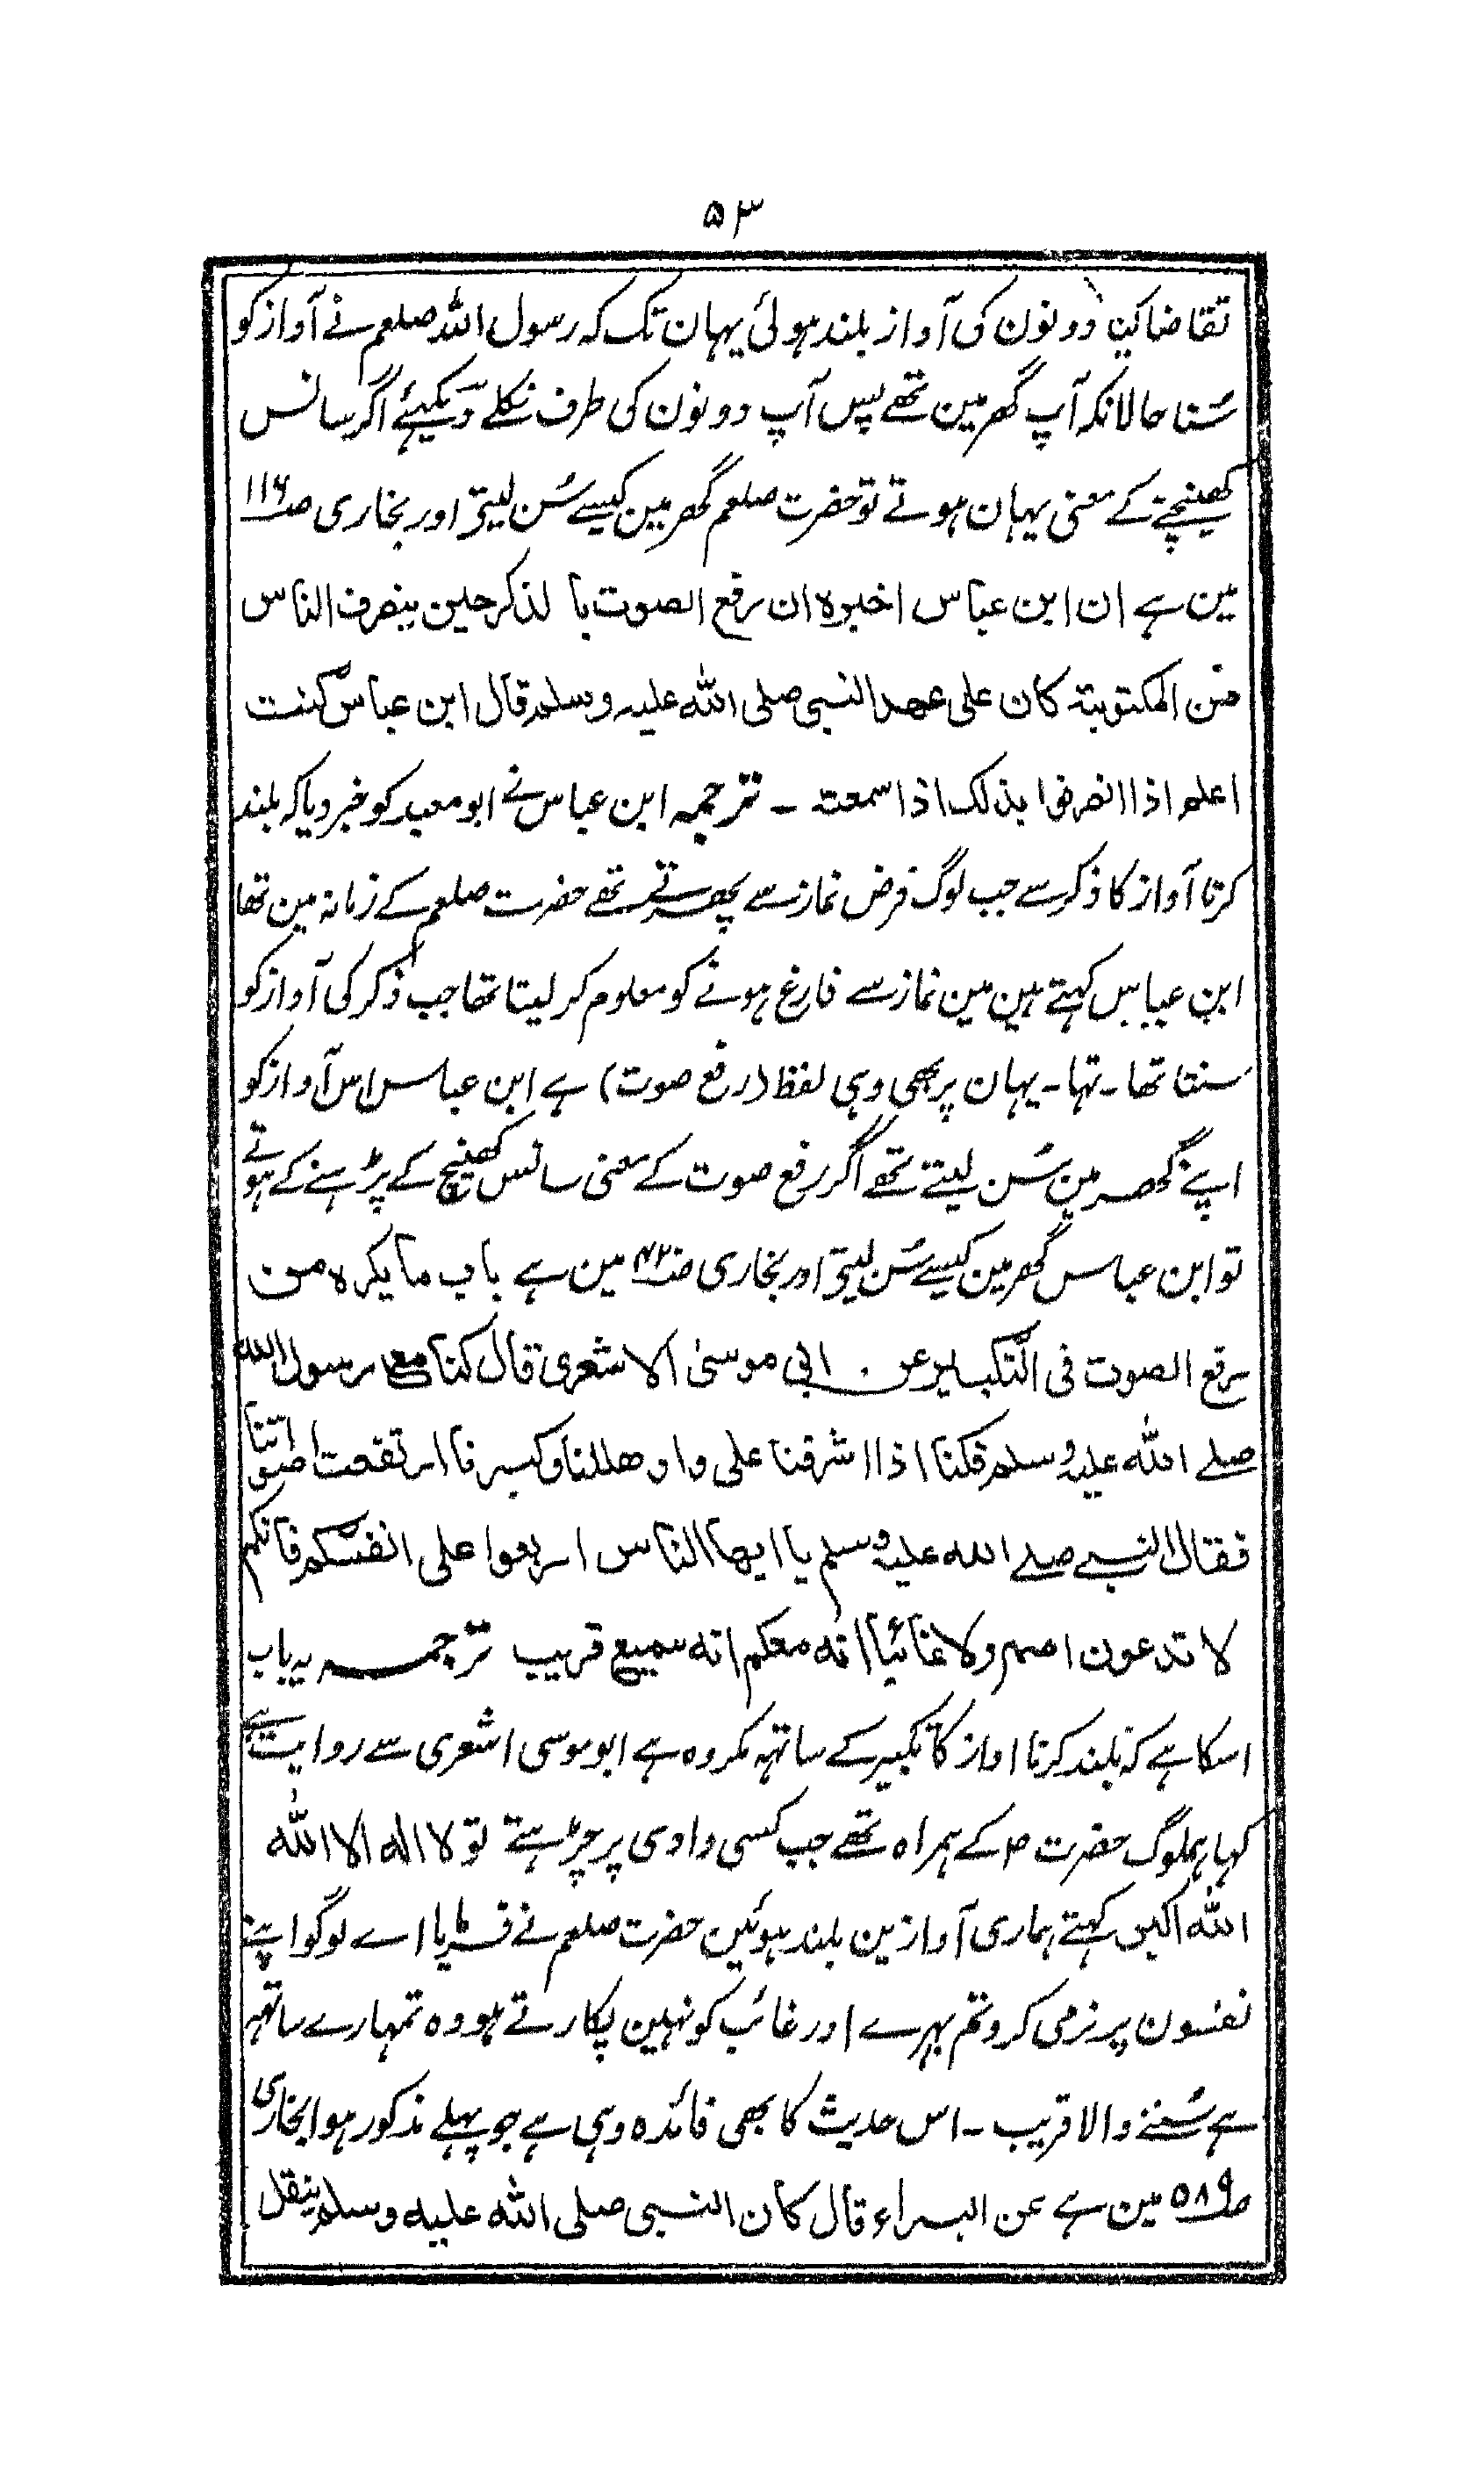 ۵۳
تقاضا کین دونون کی آواز بلند ہوئی یہان تک کہ رسول اللہ صلعم نے آواز کو
سُنا حالانکہ آپ گھر مین تھے پس آپ دونون کی طرف نکلے دیکہئے اگر سانس
کھینچنے کے معنی یہان ہوتے تو حضرت صلعم گھر مین کیسے سُن لیتے اور بخاری صـ ۱۱۶
مین ہے ان ابن عباس اخبرہ ان رفع الصوت بالذکر حین ینصرف الناس
من المکتوبۃ کان علی عھد النبی صلی اللہ علیہ وسلم قال ابن عباس کنت
اعلم اذا انصرفوا بذلک اذا سمعتہ ۔ ترجمہ ابن عباس نے ابو معبد کو خبر دیا کہ بلند
کرنا آواز کا ذکر سے جب لوگ فرض نماز سے پھرتے تھے حضرت صلعم کے زمانہ مین تھا
ابن عباس کہتے ہین مین نماز سے فارغ ہونے کو معلوم کر لیتا تھا جب ذکر کی آواز کو
سنتا تھا ۔ تہا ۔ یہان پر بھی وہی لفظ (رفع صوت) ہے ابن عباس اس آواز کو
اپنے گھر مین سُن لیتے تھے اگر رفع صوت کے معنی سانس کھینچ کے پڑہنے کے ہوتے
تو ابن عباس گھر مین کیسے سُن لیتے اور بخاری صـ مین ہے باب ما یکرہ من
رفع الصوت فی التکبیر عن ابی موسیٰ الاشعری قال کنا مع رسول اللہ
صلے اللہ علیہ وسلم فکنا اذا اشرفنا علی واد ھللنا وکبرنا ارتفعت اصواتنا
فقال النبے صلے اللہ علیہ وسلم یا ایھا الناس اربعوا علی انفسکم فانکم
لا تدعون اصم ولا غائباً انہ معکم انہ سمیع قریب ترجمہ یہ باب
اسکا ہے کہ بلند کرنا اواز کا تکبیر کے ساتہہ مکروہ ہے ابو موسی اشعری سے روایت ہے
کہا ہملوگ حضرت ص کے ہمراہ تھے جب کسی وادی پر چڑہتے تو لا الہ الا اللہ
اللہ اکبر کہتے ہماری آوازین بلند ہوئین حضرت صلعم نے فرمایا اے لوگو اپنے
نفسون پر نرمی کرو تم بہرے اور غائب کو نہین پکارتے ہو وہ تمہارے ساتھہ
ہے سُننے والا قریب ۔ اس حدیث کا بھی فائدہ وہی ہے جو پہلے مذکور ہوا بخاری
صـ ۵۸۹ مین ہے عن البراء قال کان النبی صلی اللہ علیہ وسلم ینقل